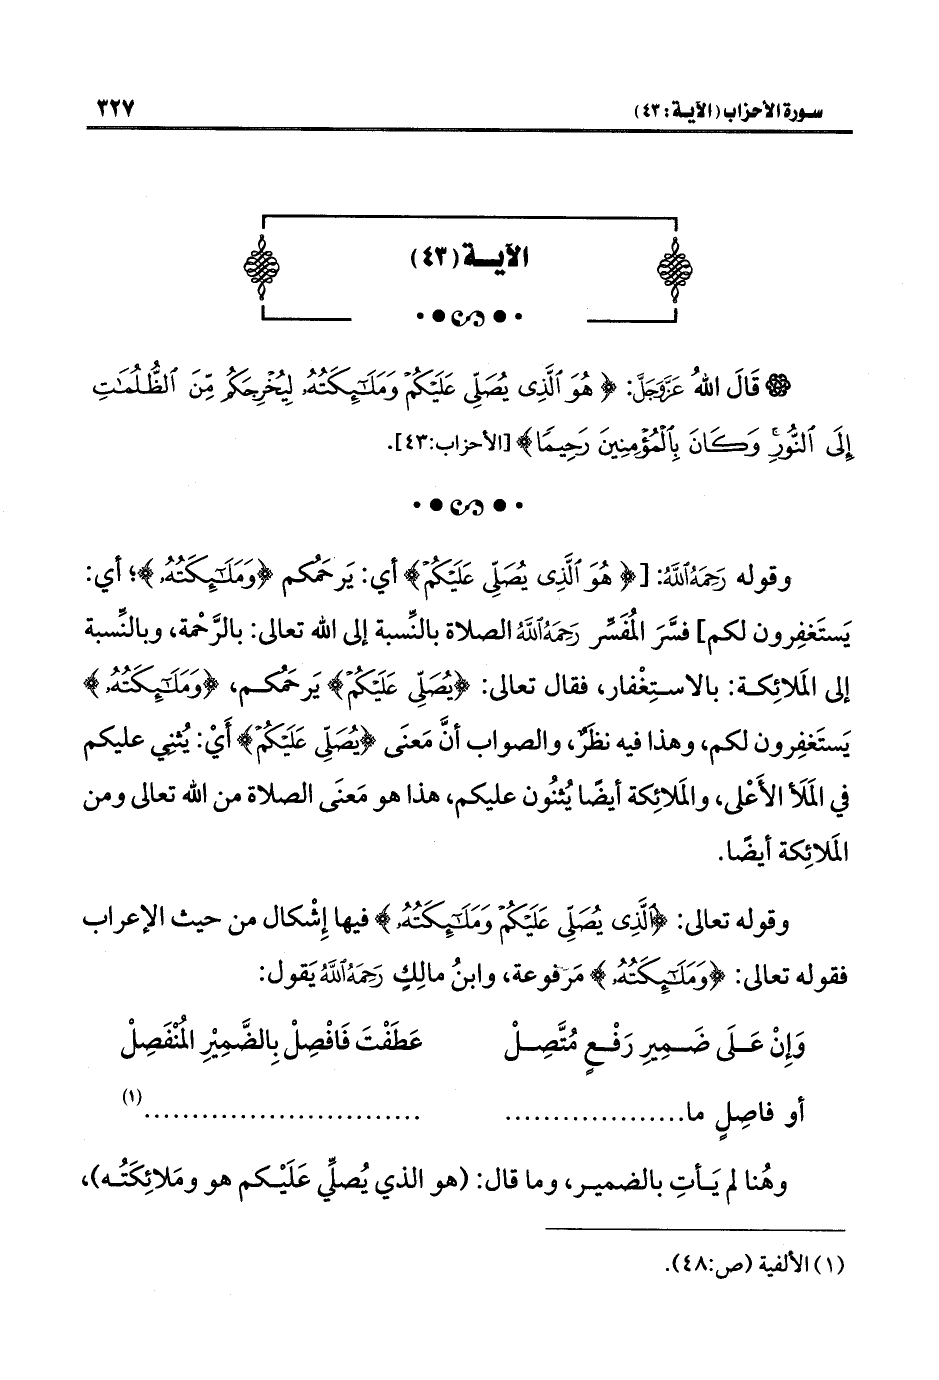 سورة الأحزاب (الآية: ٤٣)
٣٢٧
الآية (٤٣)
قَالَ اللهُ عَزَّوَجَلَّ: ﴿ هُوَ ٱلَّذِى يُصَلِّى عَلَيْكُمْ وَمَلَـٰٓئِكَتُهُۥ لِيُخْرِجَكُم مِّنَ ٱلظُّلُمَـٰتِ
إِلَى ٱلنُّورِ ۚ وَكَانَ بِٱلْمُؤْمِنِينَ رَحِيمًا﴾ [الأحزاب:٤٣].
وقوله رَحِمَهُ اللَّهُ: [﴿ هُوَ ٱلَّذِى يُصَلِّى عَلَيْكُمْ﴾ أي: يَرحَمُكم ﴿وَمَلَـٰٓئِكَتُهُۥ﴾؛ أي:
يَستَغفِرون لكم] فسَّرَ المُفَسِّر رَحِمَهُ اللَّهُ الصلاة بالنِّسبة إلى الله تعالى: بالرَّحْمة، وبالنِّسبة
إلى المَلائِكة: بالاستِغْفار، فقال تعالى: ﴿يُصَلِّى عَلَيْكُمْ﴾ يَرحَمُكم، ﴿وَمَلَـٰٓئِكَتُهُۥ﴾
يَستَغفِرون لكم، وهذا فيه نظَرٌ، والصواب أنَّ مَعنَى ﴿يُصَلِّى عَلَيْكُمْ﴾ أَيْ: يُثنِي عليكم
في المَلَأ الأَعْلى، والمَلائِكة أيضًا يُثنُون عليكم، هذا هو مَعنَى الصلاة من الله تعالى ومن
المَلائِكة أيضًا.
وقوله تعالى: ﴿ٱلَّذِى يُصَلِّى عَلَيْكُمْ وَمَلَـٰٓئِكَتُهُۥ﴾ فيها إِشْكال من حيث الإعراب
فقوله تعالى: ﴿وَمَلَـٰٓئِكَتُهُۥ﴾ مَرْفوعة، وابنُ مالِكٍ رَحِمَهُ اللَّهُ يَقول:
وَإِنْ عَلَى ضَمِيرِ رَفْعٍ مُتَّصِلْ عَطَفْتَ فَافْصِلْ بِالضَّمِيْرِ المُنْفَصِلْ
أو فاصِلٍ ما................... ............................(١)
وهُنا لم يَأتِ بالضمير، وما قال: (هو الذي يُصلِّي عَلَيْكم هو ومَلائِكَتُه)،
(١) الألفية (ص:٤٨).